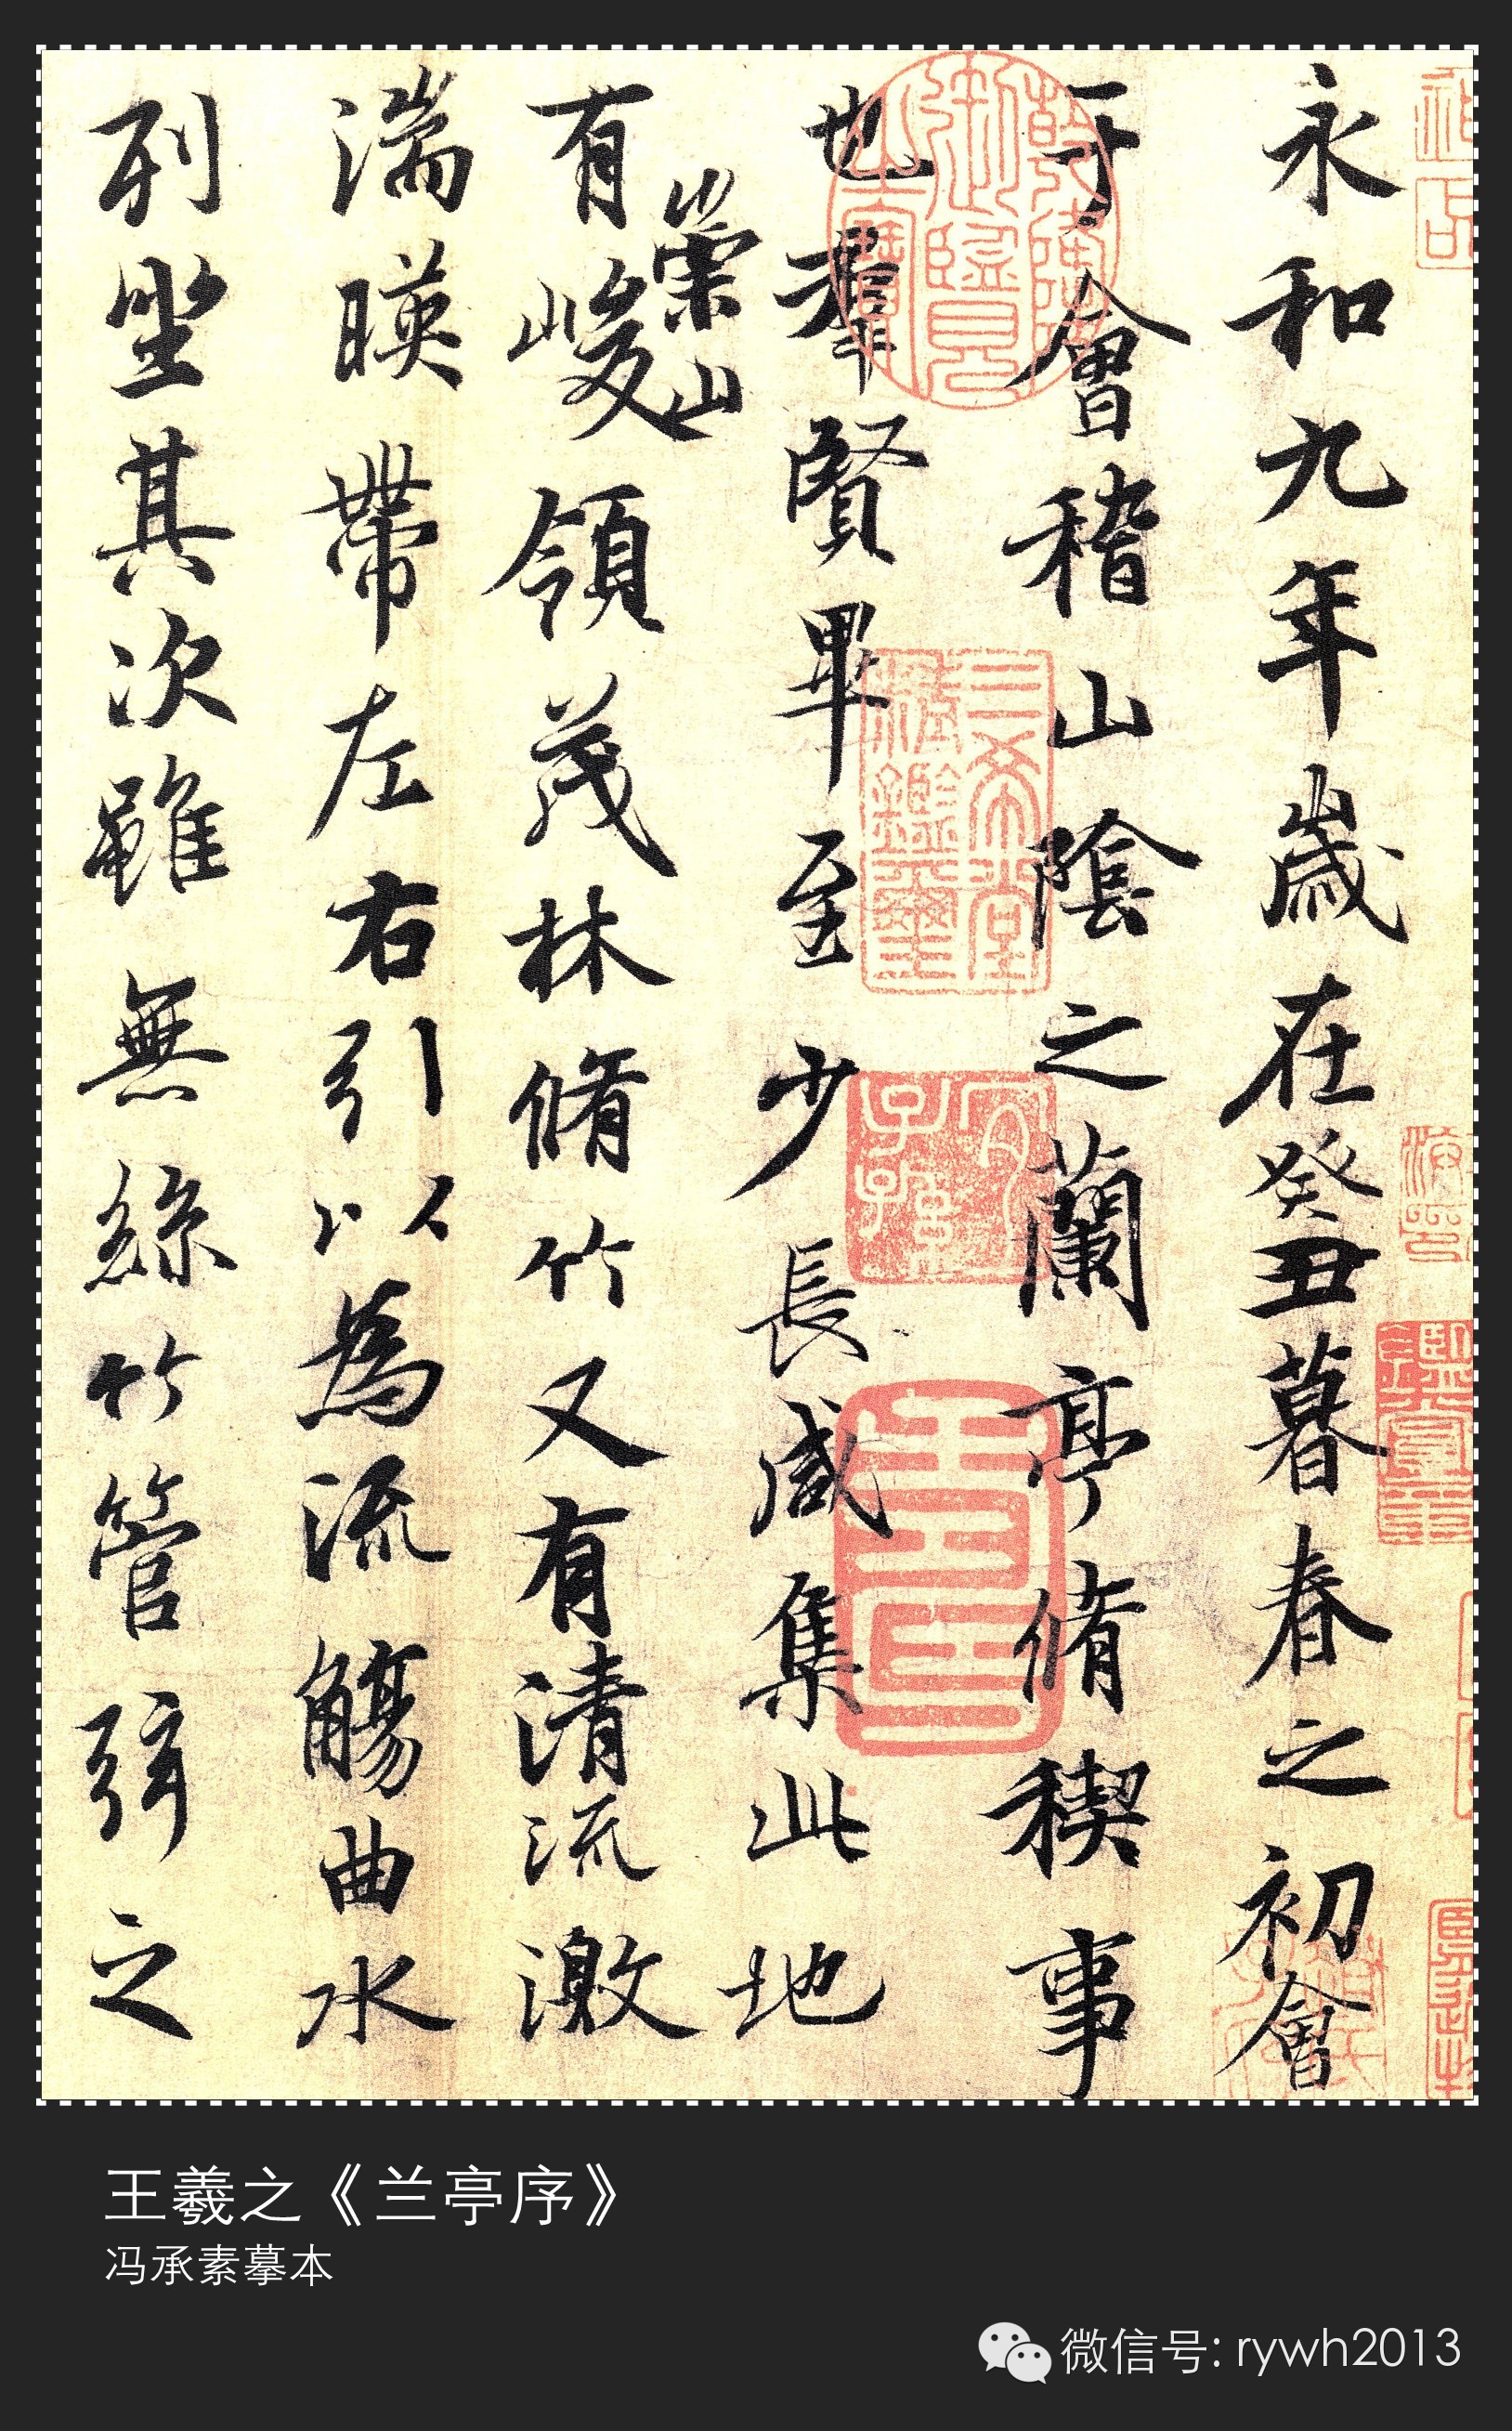 永和九年歲在癸丑暮春之初會
于會稽山陰之蘭亭脩稧事
也羣賢畢至少長咸集此地
有
崇山
峻領茂林脩竹又有清流激
湍暎帶左右引以為流觴曲水
列坐其次雖無絲竹管弦之
三希堂精鑑璽
宜子孫
王羲之《兰亭序》
冯承素摹本
微信号: rywh2013